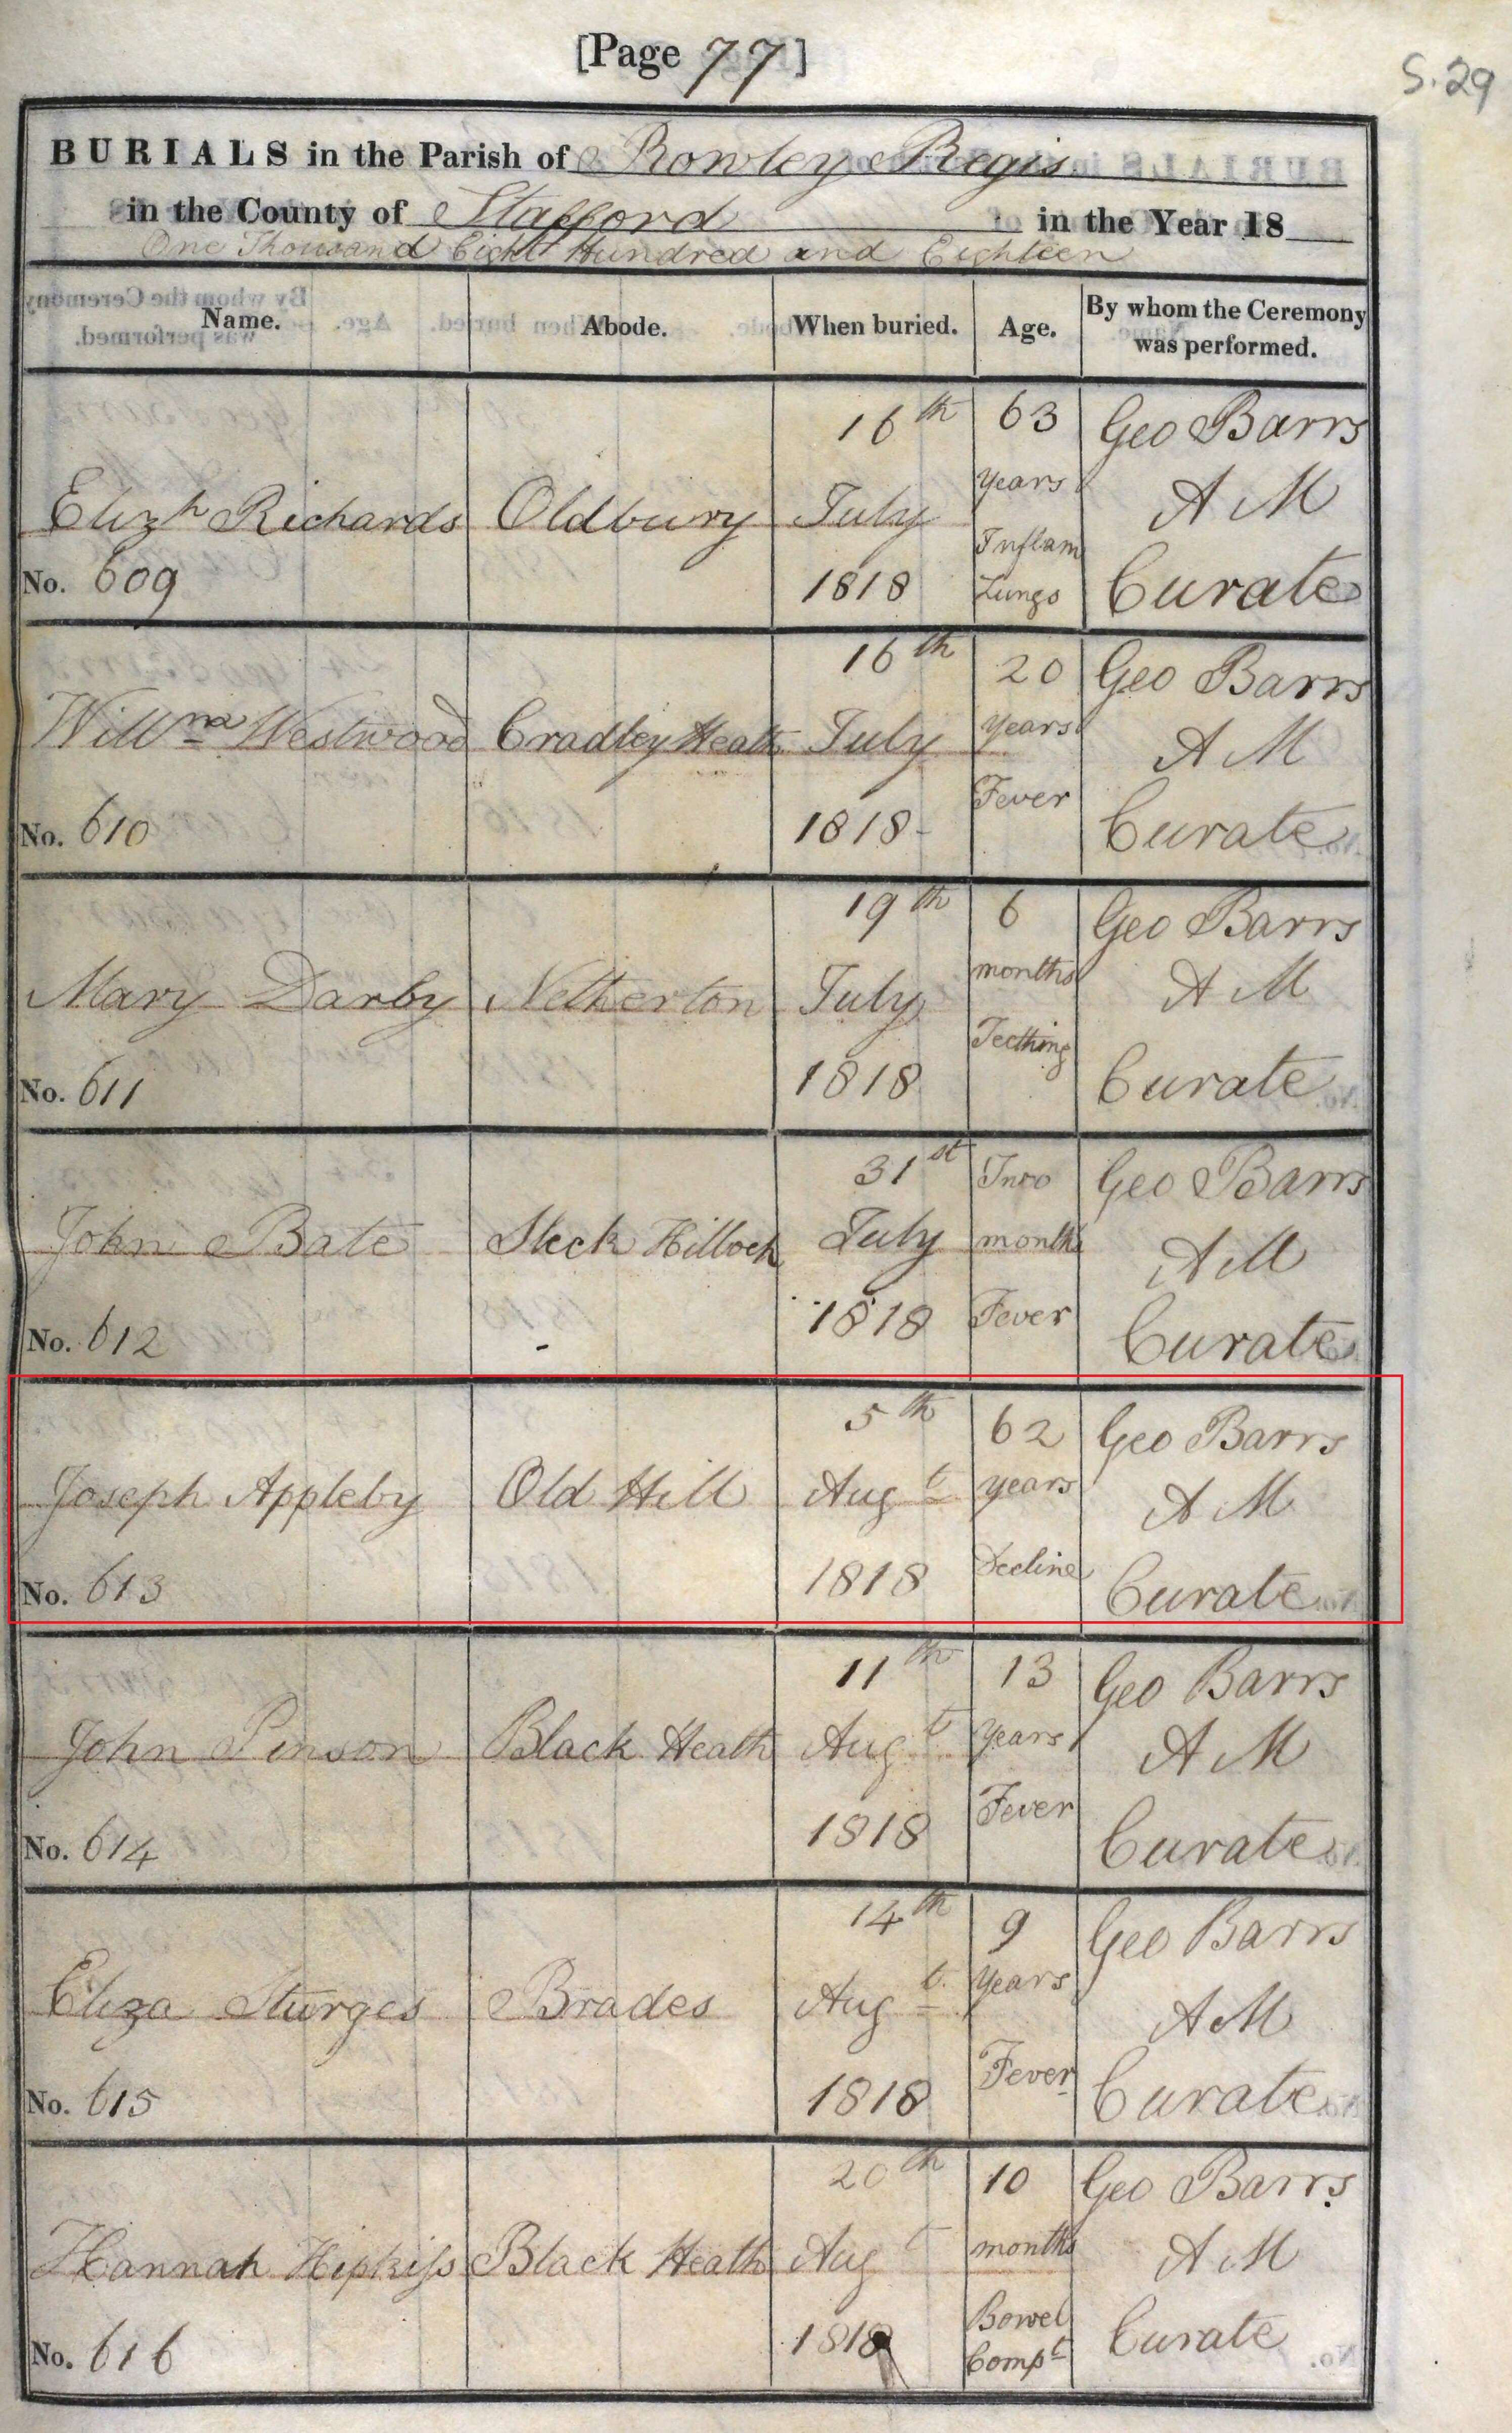 [Page 77]
S.29
BURIALS in the Parish of Rowley Regis
in the County of Stafford in the Year 18
One Thousand Eight Hundred and Eighteen
Name. Abode. When buried. Age. By whom the Ceremony
was performed.
16th 63 Geo Barrs
years
Elizh Richards Oldbury July A M
Inflam
No. 609 1818 Lungs Curate
16th 20 Geo Barrs
Willm Westwood Cradley Heath July years A M
Fever
No. 610 1818 Curate
19th 6 Geo Barrs
months
Mary Darby Netherton July A M
Teething
No. 611 1818 Curate
31st Two Geo Barrs
John Bate Hillock July months A M
No. 612 1818 Fever Curate
5th 62 Geo Barrs
Joseph Appleby Old Hill Augt years A M
Decline
No. 613 1818 Curate
11th 13 Geo Barrs
John Pinson Black Heath Augt years A M
Fever
No. 614 1818 Curate
14th 9 Geo Barrs
years
Eliza Sturges Brades Augt A M
Fever
No. 615 1818 Curate
20th 10 Geo Barrs
months
Hannah Hipkiss Black Heath Augt A M
Bowel
No. 616 1818 Compt Curate